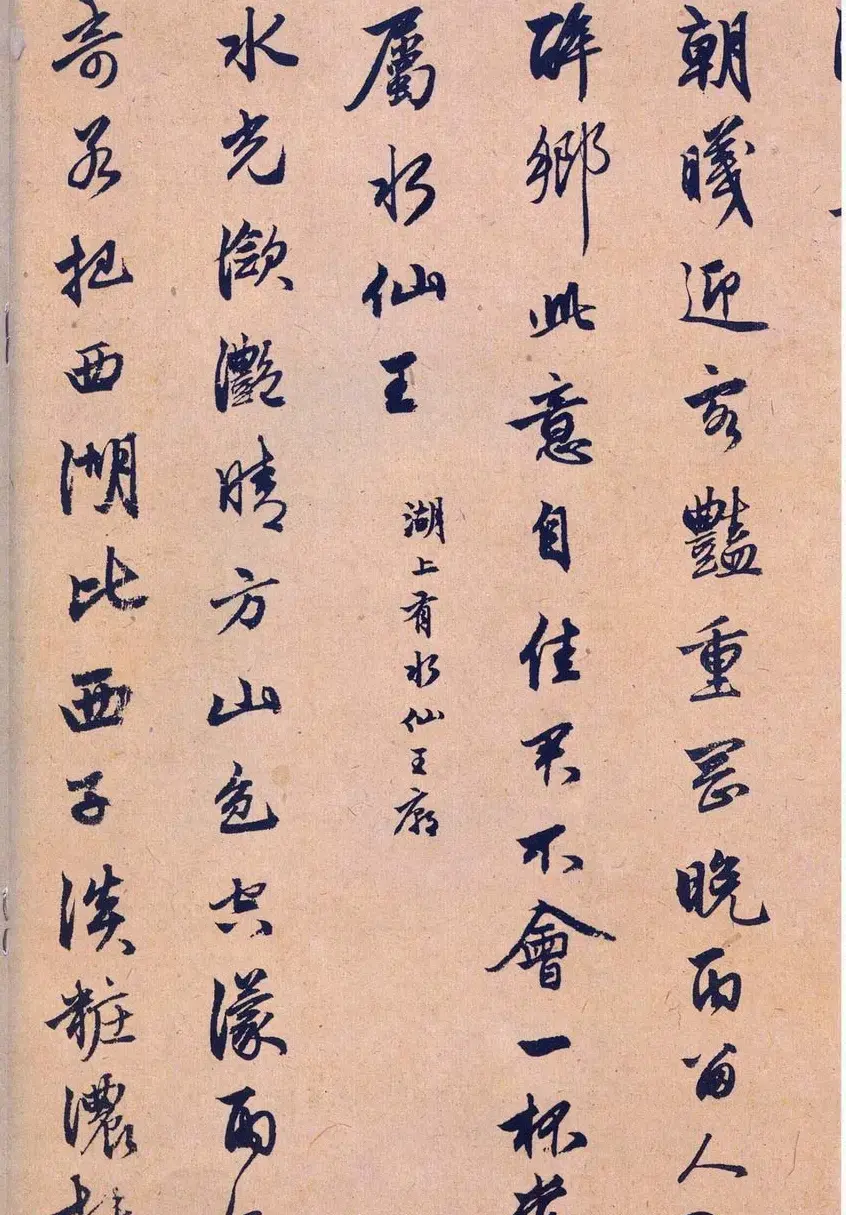 朝曦迎客豔重罡晚雨留人
醉鄉此意自佳君不會一杯當
屬水仙王
湖上有水仙王廟
水光瀲灧晴方山色空濛雨
奇若把西湖比西子淡粧濃抹